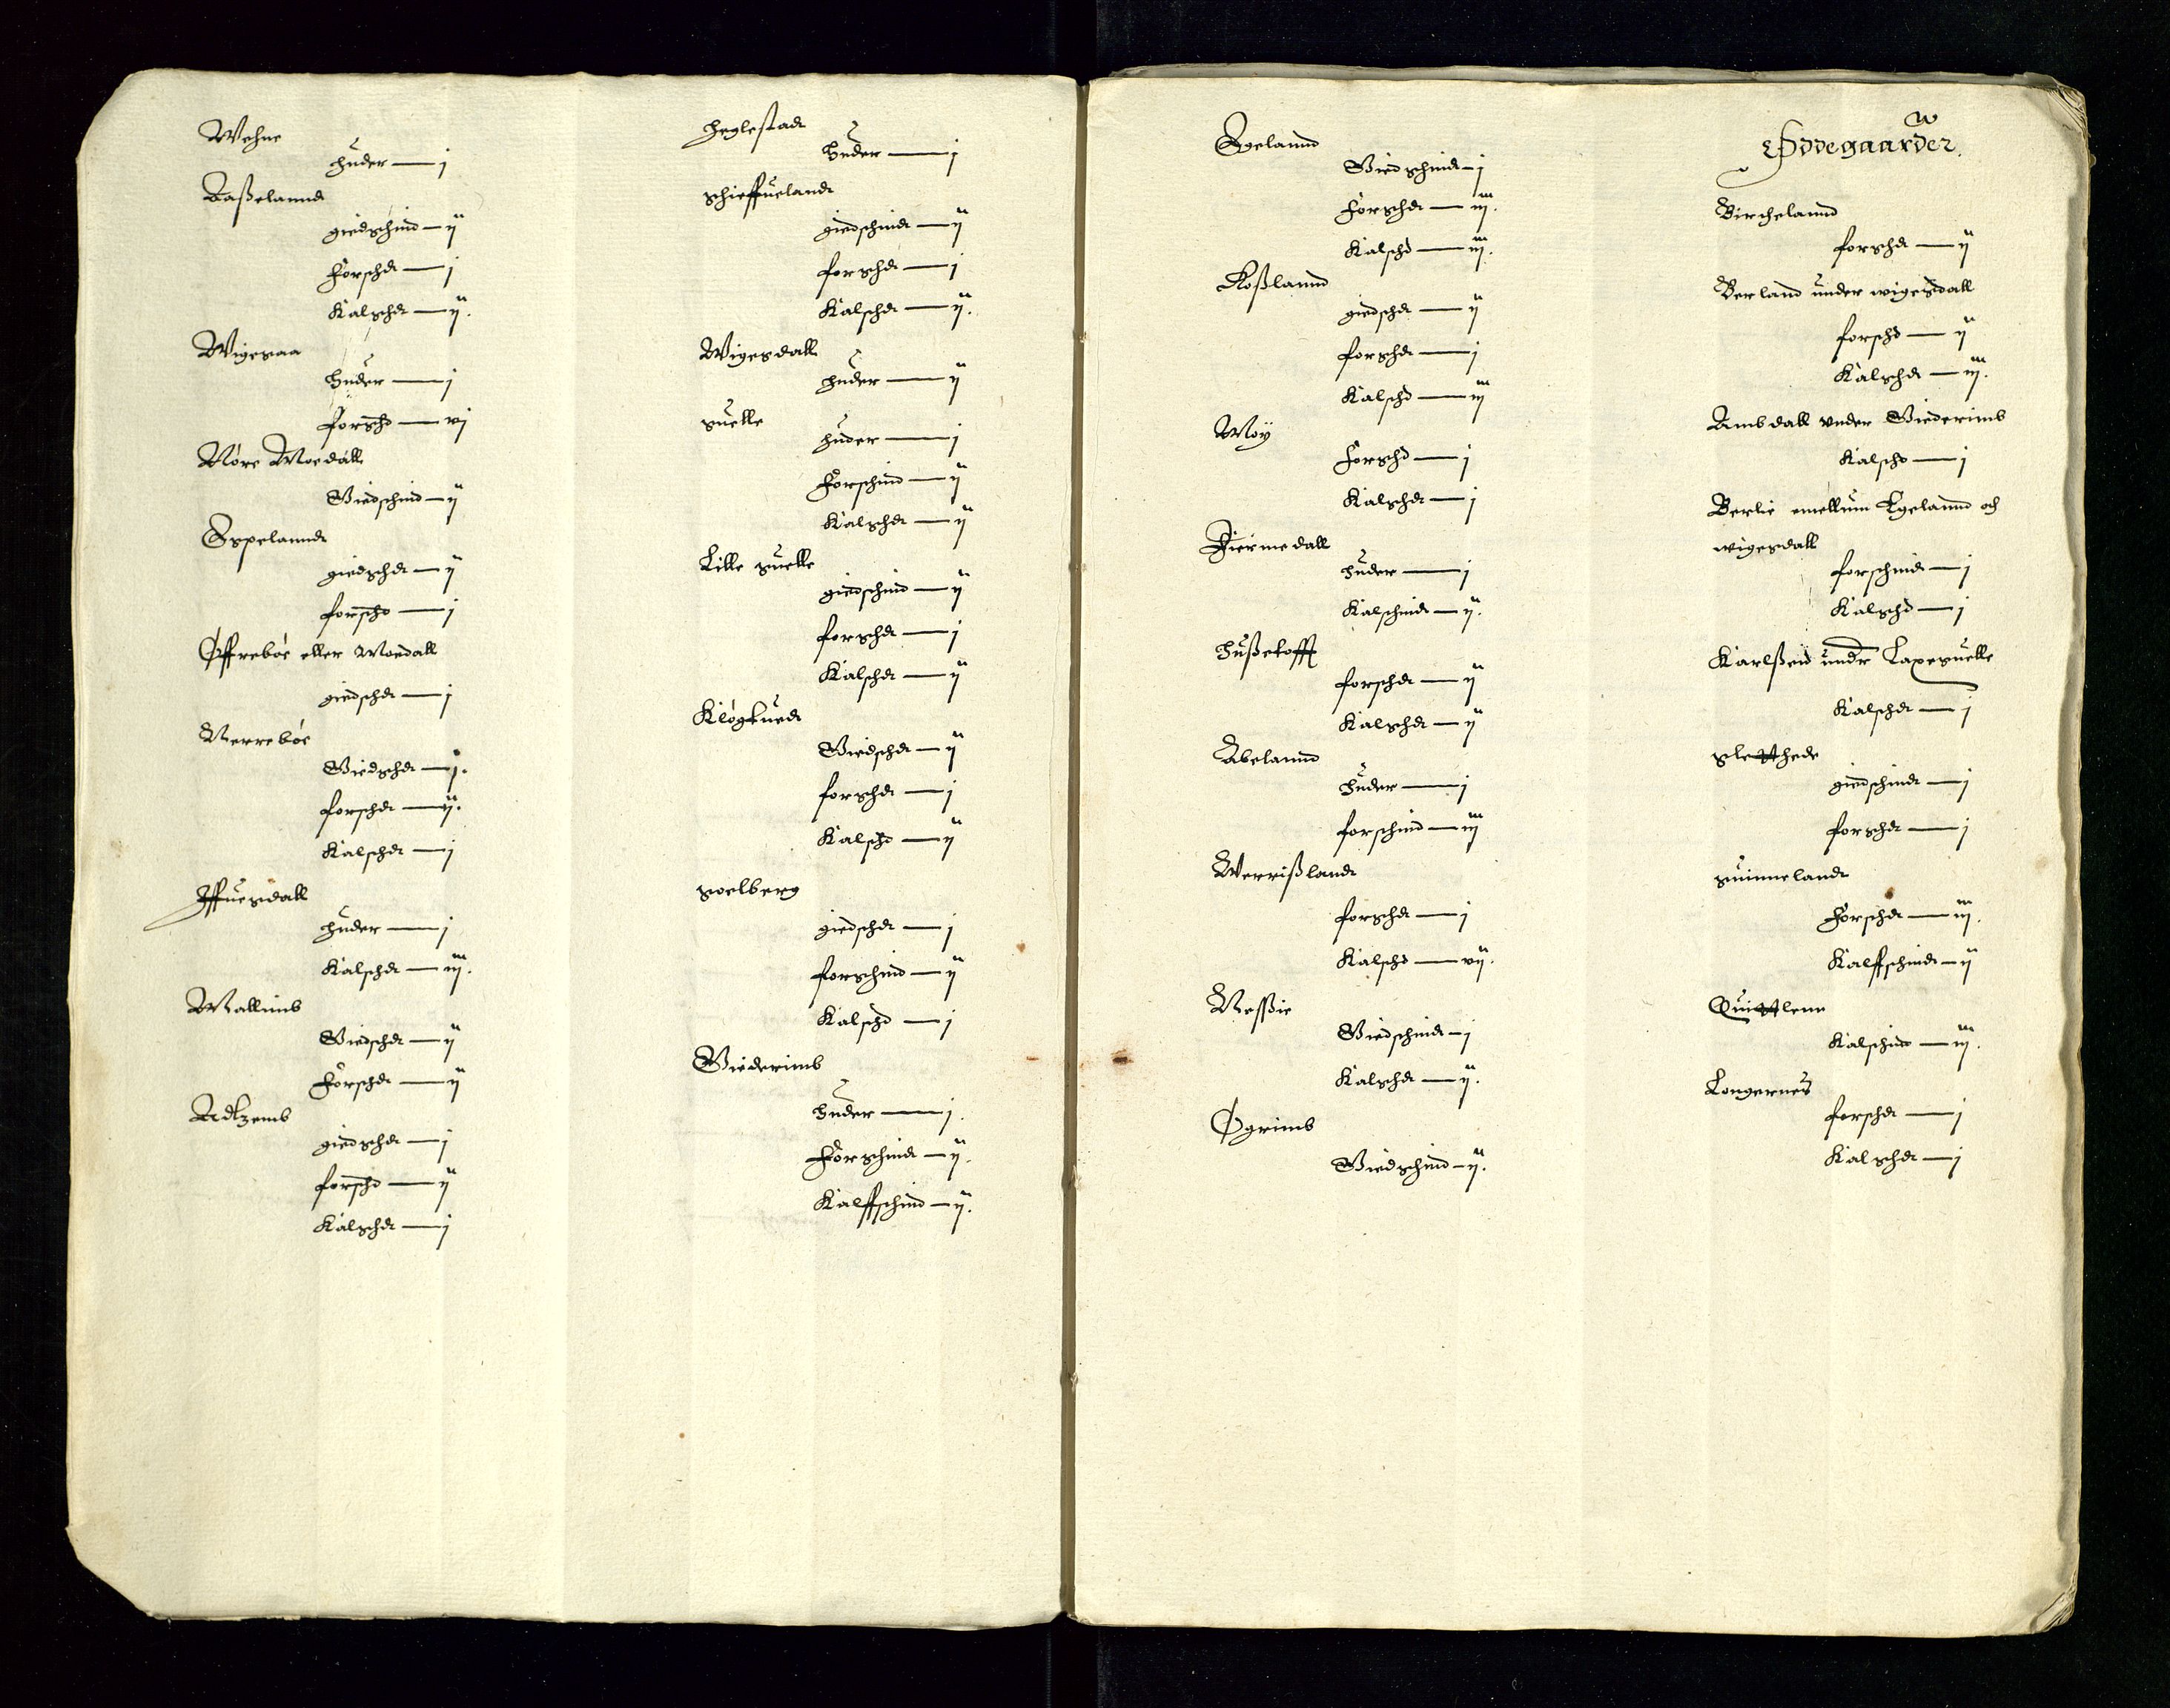 Wehne
huder — j
Raßelannd
giedschind — ij
Forschd — j
Kalschd — ij.
Wigesaa
huder — j
forschd — vj
Nóre Moedall
Giedschind — ij
Espelannd
giedschd — ij
forschd — j
Øffrebóe eller Moedall
giedschd — j
Nerrebóe
Giedschd — j.
forschd — ij.
Kalschd — j
Iffuesdall
huder — j
Kalschd — iij.
Mallimb
Giedschd — ij
Forschd — ij
Adtzemb
giedschd — j
forschd — ij
Kalschd — j
Heglestad
huder — j
schieffueland
giedschind — ij
forschd — j
Kalschd — ij.
Wigesdall
huder — ij
suelle
huder — j
Forschind — ij
Kalschd — ij
Lille suelle
giedschind — ij
forschd — j
Kalschd — ij
Klógtued
Giedschd — ij
forschd — j
Kalschd — ij
soelberg
giedschd — j
forschind — ij
Kalschd — j
Giederimb
huder — j.
Forschind — ij.
Kalffschind — ij.
Egelannd
Giedschind — j
Forschd — iij.
Kalschd — iij.
Roßlannd
giedschd — ij
forschd — j
Kalschd — iij
Moÿ
Forschd — j
Kalschd — j
Fiermedall
huder — j
Kalschind — ij.
Hußetofft
forschd — ij
Kalschd — ij
Abelannd
huder — j
forschind — iij
Werrißland
forschd — j
Kalschd — vij.
Neßie
Giedschind — j
Kalschd — ij.
Øgrimb
Giedschind — ij.
Ødegaarder.
Birchelannd
forschd — ij
Berland under wigesdall
forschd — ij
Kalschd — iij.
Ambdall vnder Giederimb
Kalschd — j
Berlie emellum Egelannd och
wigesdall
forschind — j
Kalschd — j
Karlßeid under Laxesuelle
Kalschd — j
sletthede
giedschind — j
forschd — j
suinneland
Forschd — iij.
Kalffschind — ij
Quittlenn
Kalschind — iij.
Longernes
forschd — j
Kalschd — j